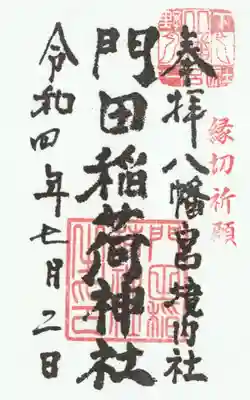 縁切祈願
奉拝 八幡宮境内社
門田稲荷神社
令和四年七月二日